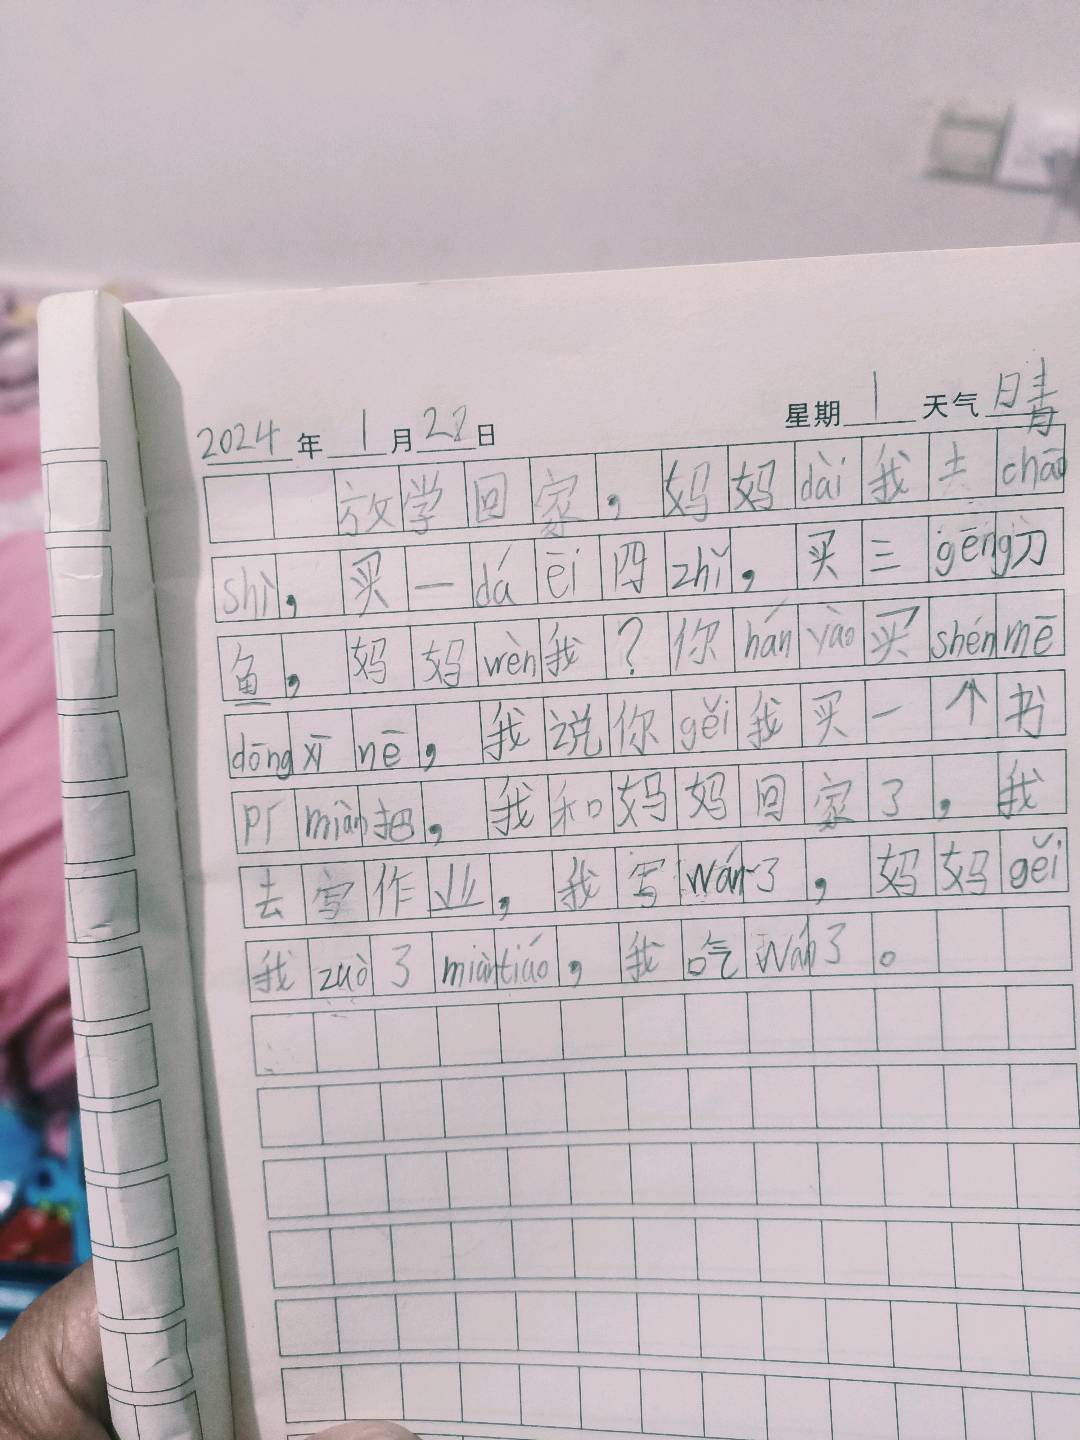 2024年1月22日 星期1天气晴
放学回家，妈妈dài我去chāo
shì，买一dá ēi四zhǐ，买三gēng刀
鱼，妈妈wèn我？你hán yào买shén mē
dōng xī nē，我说你gěi我买一个书
pí miàn把，我和妈妈回家了，我
去写作业，我写wán了，妈妈gěi
我zuò了miàntiáo，我吃wán了。